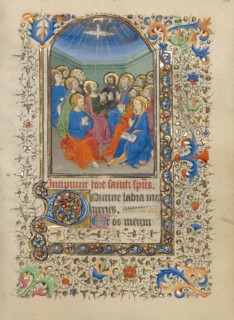 Incipiunt hore sancti spus.
Domine labia me
a aperies.
Et os meum